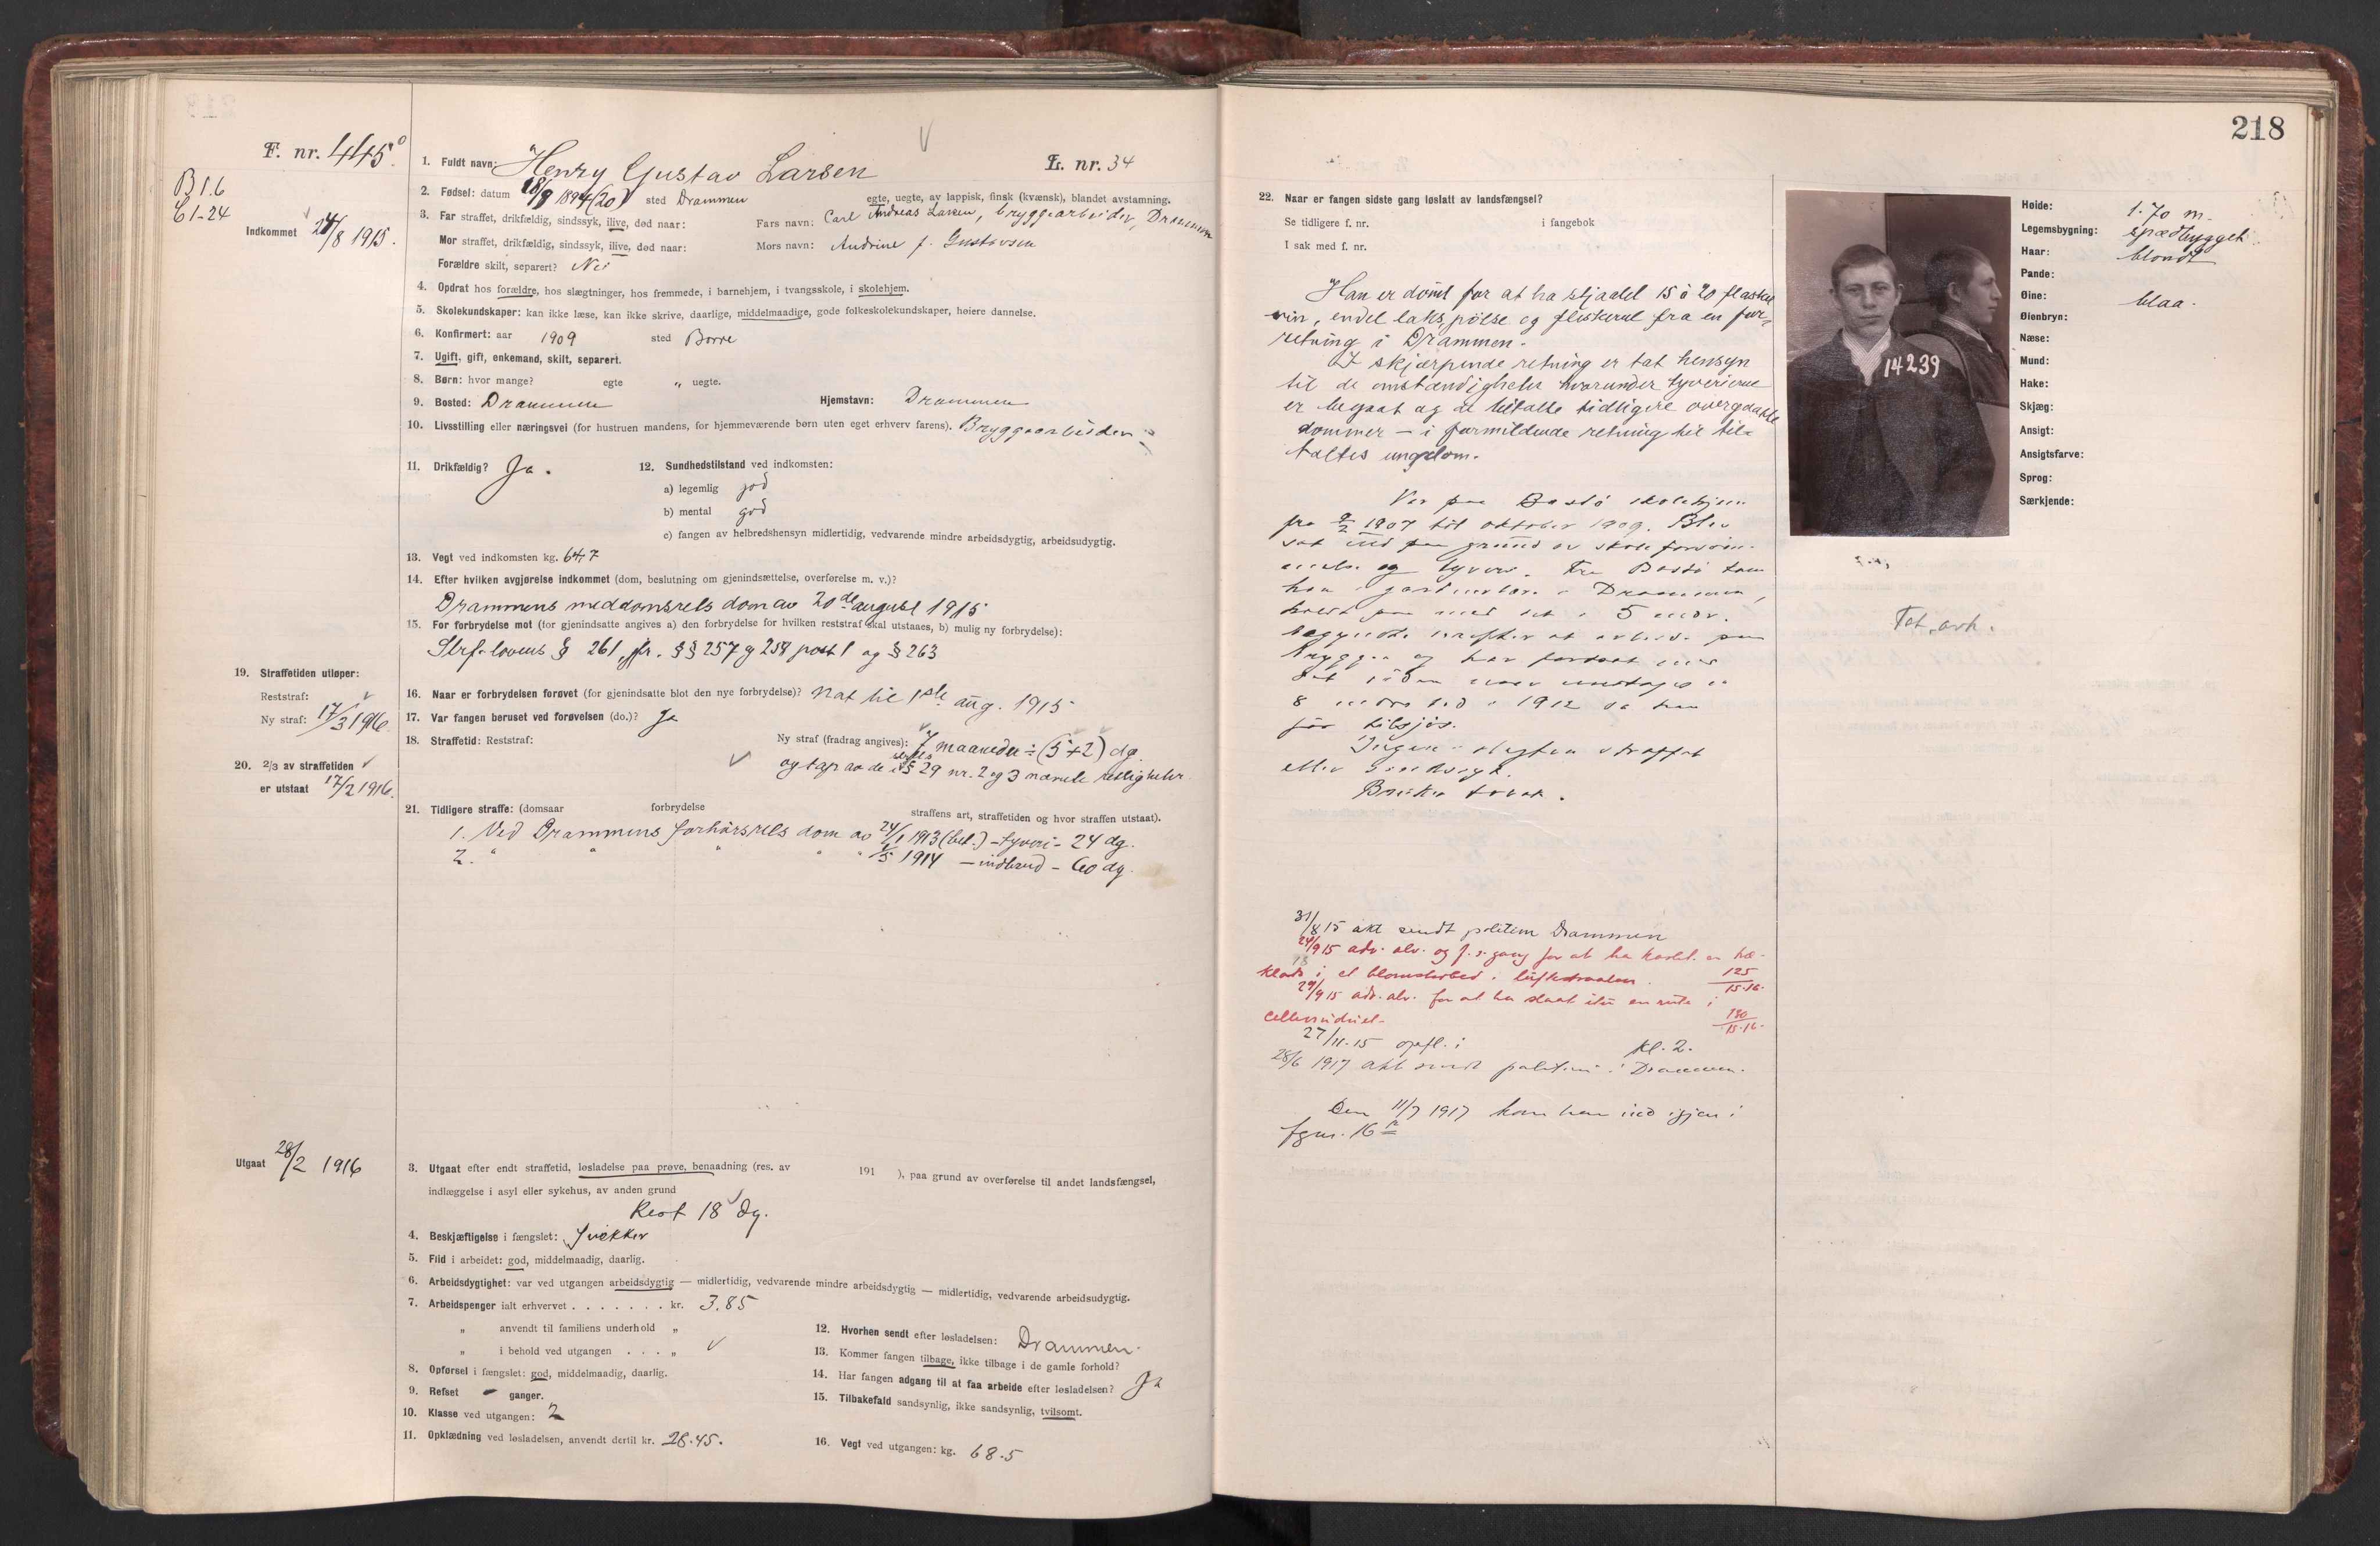 218
F. nr. 445
B 1.6
C 1-24
Indkommet 24/8 1915.
1. Fuldt navn: Henry Gustav Larsen
L. nr. 34
2. Fødsel: datum 18/9 1894 (20) sted Drammen
egte, uegte, av lappisk, finsk (kvænsk), blandet avstamning.
3. Far straffet, drikfældig, sindssyk, ilive, død naar: Fars navn: Carl Andreas Larsen, bryggearbeider, Drammen
Mor straffet, drikfældig, sindssyk, ilive, død naar: Mors navn: Andrine f. Gustavsen
Forældre skilt, separert? Nei
4. Opdrat hos forældre, hos slægtninger, hos fremmede, i barnehjem, i tvangsskole, i skolehjem.
5. Skolekundskaper: kan ikke læse, kan ikke skrive, daarlige, middelmaadige, gode folkeskolekundskaper, høiere dannelse.
6. Konfirmert: aar 1909 sted Borre
7. Ugift, gift, enkemand, skilt, separert.
8. Børn: hvor mange? egte „ uegte.
9. Bosted: Drammen Hjemstavn: Drammen
10. Livsstilling eller næringsvei (for hustruen mandens, for hjemmeværende børn uten eget erhverv farens). Bryggearbeider
11. Drikfældig? Ja.
12. Sundhedstilstand ved indkomsten:
a) legemlig god
b) mental god
c) fangen av helbredshensyn midlertidig, vedvarende mindre arbeidsdygtig, arbeidsudygtig.
13. Vegt ved indkomsten kg. 64,7
14. Efter hvilken avgjørelse indkommet (dom, beslutning om gjenindsættelse, overførelse m. v.)?
Drammens meddomsrets dom av 20de august 1915
15. For forbrydelse mot (for gjenindsatte angives a) den forbrydelse for hvilken reststraf skal utstaaes, b) mulig ny forbrydelse):
Strf.lovens § 261, jfr. §§ 257 og 258 post 1 og § 263
16. Naar er forbrydelsen forøvet (for gjenindsatte blot den nye forbrydelse)? Nat til 1ste aug. 1915
17. Var fangen beruset ved forøvelsen (do.)? Ja
18. Straffetid: Reststraf: Ny straf (fradrag angives): 7 maaneder ÷ (5+2) dg.
og tap av de i strfl.s § 29 nr. 2 og 3 nævnte rettigheter.
19. Straffetiden utløper:
Reststraf:
Ny straf: 17/3 1916.
20. 2/3 av straffetiden
er utstaat 17/2 1916.
21. Tidligere straffe: (domsaar forbrydelse straffens art, straffetiden og hvor straffen utstaat).
1. Ved Drammens forhørsrets dom av 24/1 1913 (bet.) - tyveri - 24 dg.
2. " " " " 1/5 1914 - indbrud - 60 dg.
Utgaat 28/2 1916
3. Utgaat efter endt straffetid, løsladelse paa prøve, benaadning (res. av 191 ), paa grund av overførelse til andet landsfængsel,
indlæggelse i asyl eller sykehus, av anden grund
Rest 18 dg.
4. Beskjæftigelse i fængslet: Snekker
5. Flid i arbeidet: god, middelmaadig, daarlig.
6. Arbeidsdygtighet: var ved utgangen arbeidsdygtig — midlertidig, vedvarende mindre arbeidsdygtig — midlertidig, vedvarende arbeidsudygtig.
7. Arbeidspenger ialt erhvervet . . . . . . . kr. 3.85
„ anvendt til familiens underhold „
„ i behold ved utgangen . . . „
8. Opførsel i fængslet: god, middelmaadig, daarlig.
9. Refset - ganger.
10. Klasse ved utgangen: 2
11. Opklædning ved løsladelsen, anvendt dertil kr. 28.45.
12. Hvorhen sendt efter løsladelsen: Drammen.
13. Kommer fangen tilbage, ikke tilbage i de gamle forhold?
14. Har fangen adgang til at faa arbeide efter løsladelsen? Ja
15. Tilbakefald sandsynlig, ikke sandsynlig, tvilsomt.
16. Vegt ved utgangen: kg. 68.5
22. Naar er fangen sidste gang løslatt av landsfængsel?
Se tidligere f. nr. i fangebok
I sak med f. nr.
Han er dømt for at ha stjaalet 15 à 20 flasker
vin, endel lakspølse og fleskerul fra en for-
retning i Drammen.
I skjærpende retning er tat hensyn
til de omstændigheter hvorunder tyverierne
er begaat og de tiltalte tidligere overgaatte
dommer — i formildende retning til til-
taltes ungdom.
Var paa Bastø skolehjem
fra 9/2 1907 til oktober 1909. Blev
sat ind paa grund av skoleforsøm-
melse og tyveri. Fra Bastø kom
han i gartnerlære i Drammen,
holdt paa med det i 5 mdr.
begyndte derefter at arbeide paa
bryggen og har fortsat med
det siden naar undtages
8 mdrs tid i 1912 da han
for tilsjøs.
Ingen i slegten straffet
eller sindssyk.
Bruker tobak.
31/8 15 akt sendt politiet Drammen
24/9 15 adv. alv. og f. s. gang for at ha kastet en
i et blomsterbed i luftestraalen. 125/15-16.
29/9 15 adv. alv. for at ha slaat itu en rute i
cellevinduet. 180/15-16.
27/11-15 opfl. i kl. 2.
28/6 1917 akt sendt politiet i Drammen.
Den 11/7 1917 kom han ind igjen i
fgnr. 16
14239
Høide: 1.70 m.
Legemsbygning: spædbygget
Haar: blondt
Pande:
Øine: blaa.
Øienbryn:
Næse:
Mund:
Hake:
Skjæg:
Ansigt:
Ansigtsfarve:
Sprog:
Særkjende:
Tat. avh.